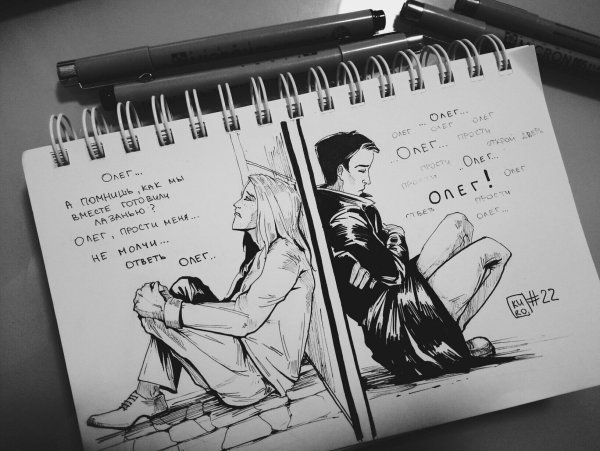 Олег...
А помнишь, как мы
вместе готовили
лазанью?
Олег, прости меня...
Не молчи...
Ответь Олег..
... Олег...
Олег Олег Олег
...Олег... прости открой дверь
прости Олег...
прости Олег
Олег!
ответь прости
Олег...
KU
RO.
#22
MICRON